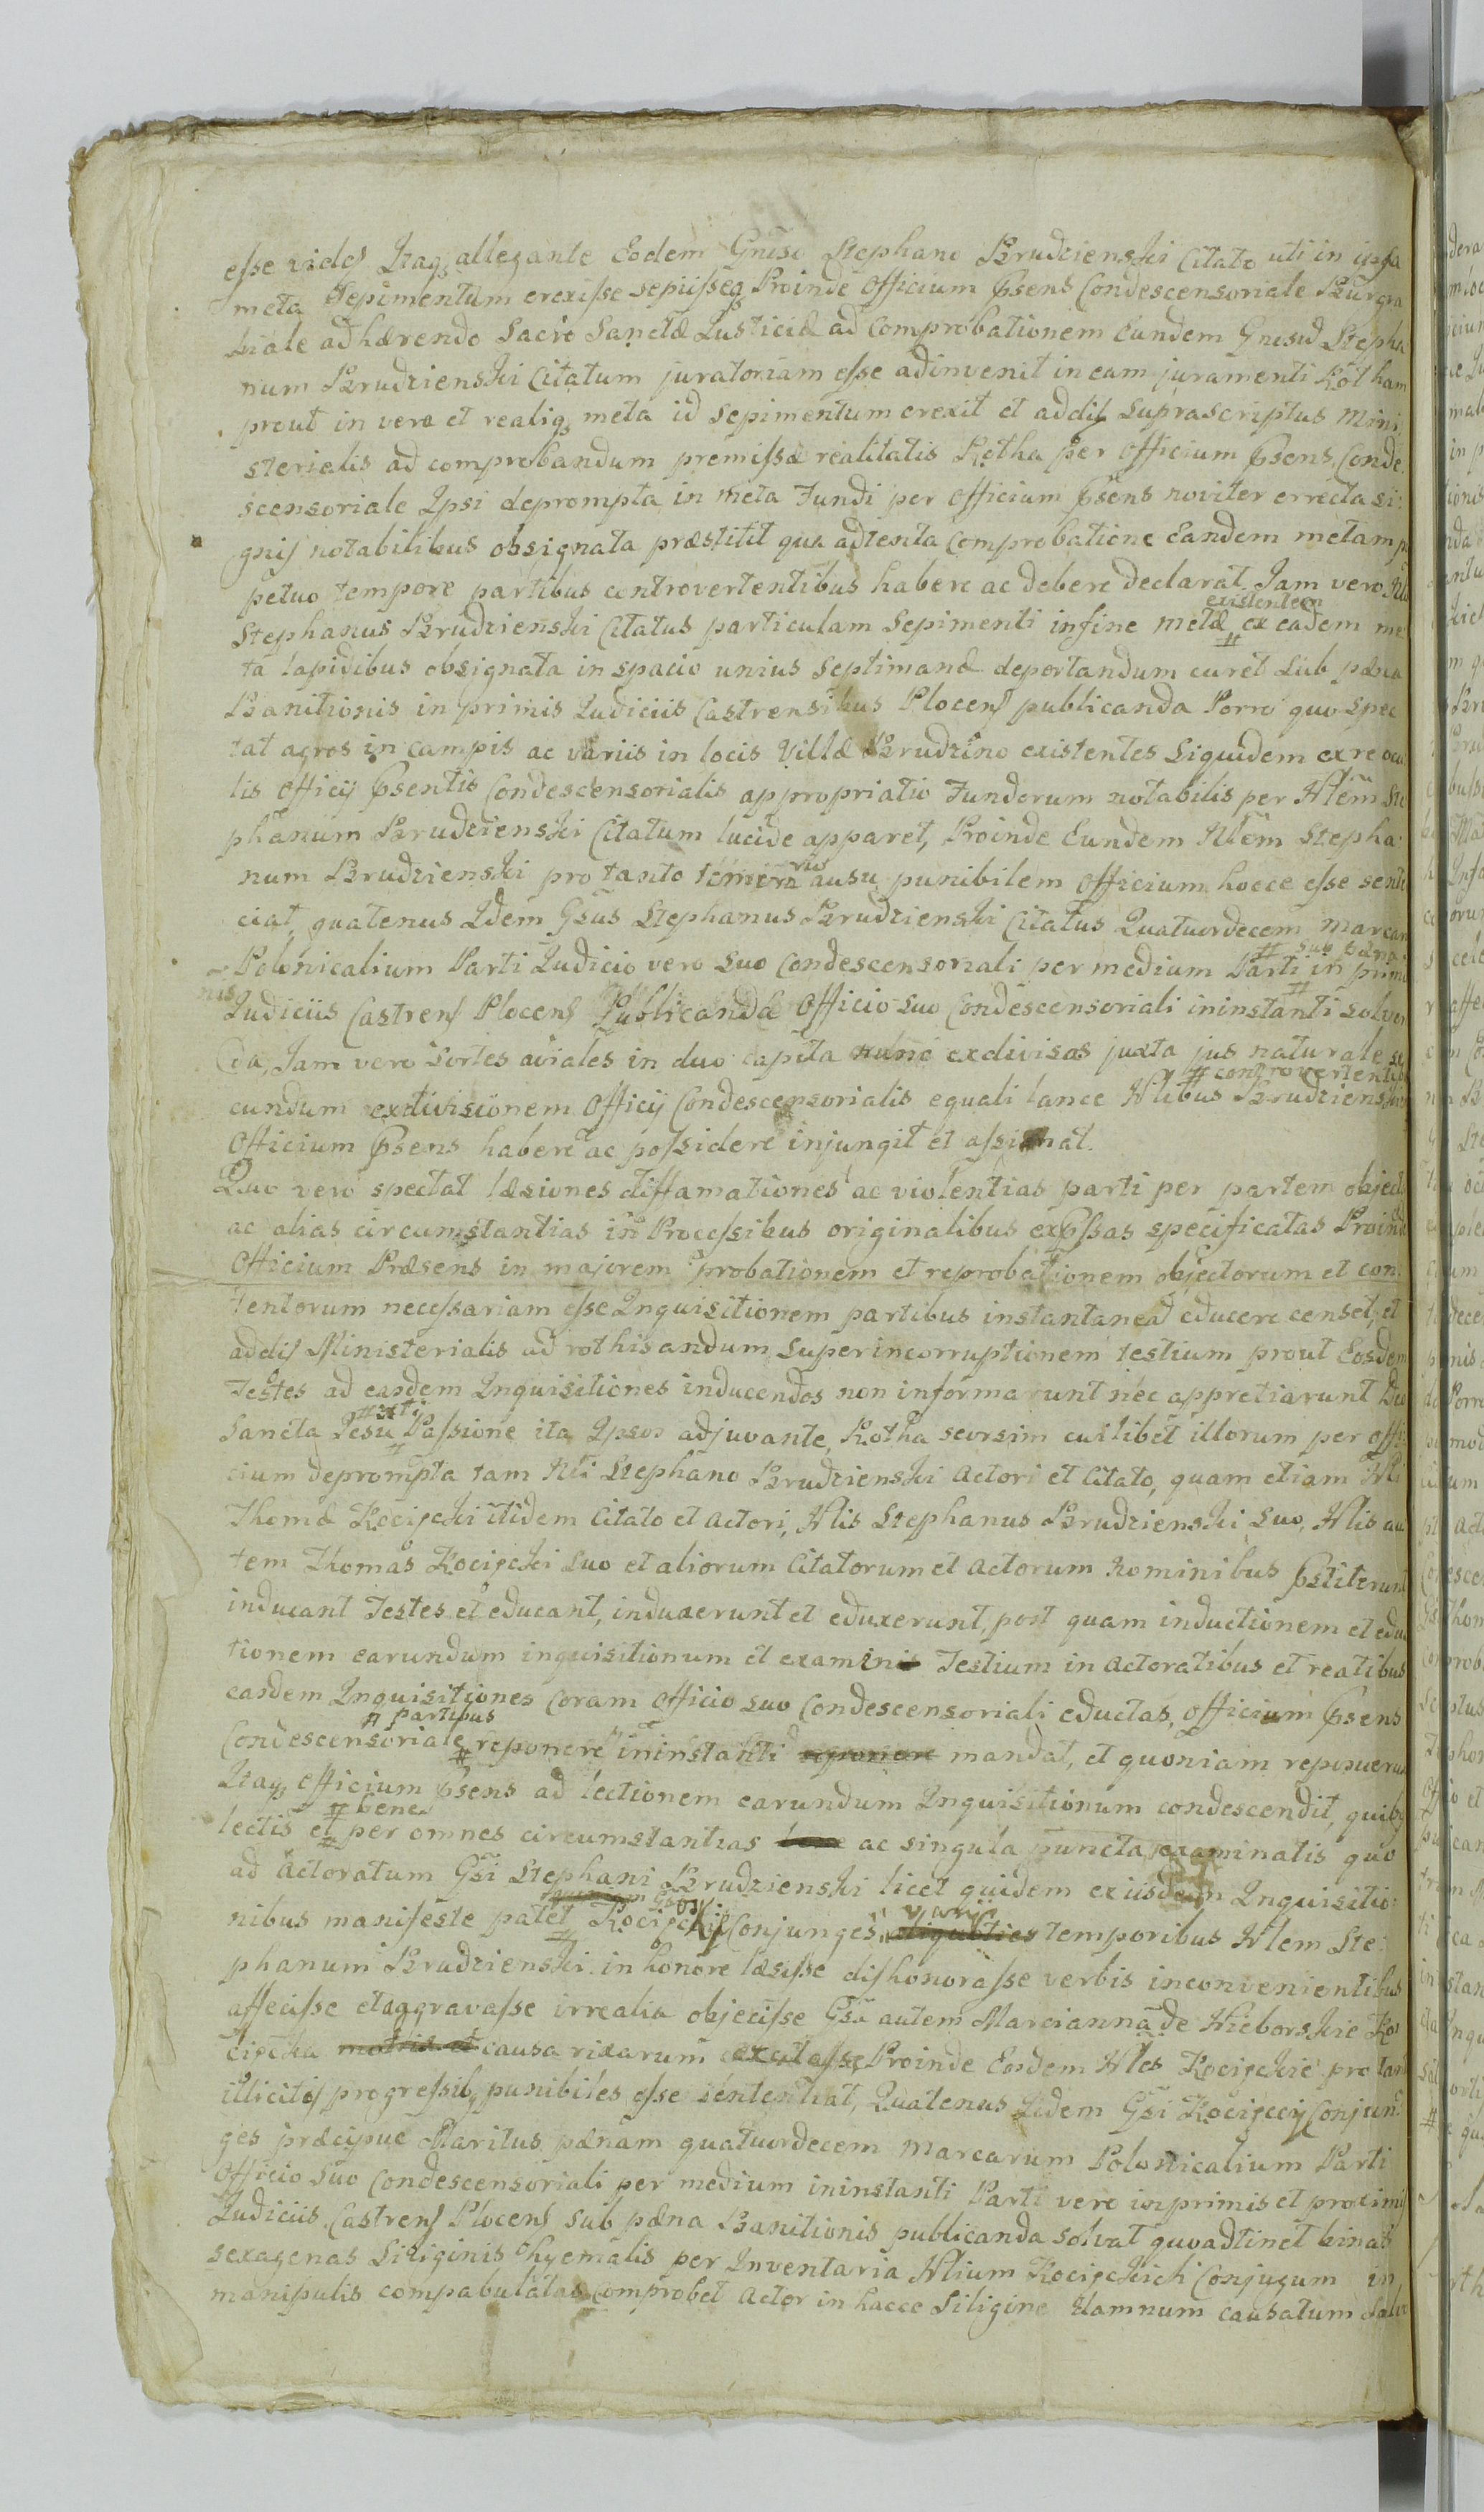 esse vides Itaq, allegante Eodem Gnoso Stephano Brudzienski Citato uti in ipsa
meta Sepimentum erexisse sepiisseq, Proinde Officium Psens Condescensoriale Burgra
biale adhærendo Sacro Sanctæ Justiciæ ad Comprobationem Eundem Gnosūd Stepha
num Brudzienski Citatum juratoriam esse adinvenit in eam juramenti Rotham
prout in vera et realiq, meta id sepimentum erexit et addis Suprascriptus Mini
sterialis ad comprobandum premissæ realitatis Rotha per Officium Psens Conde
scensoriale Ipsi deprompta in meta Fundi per Officium Psens noviter errecta si:
gnis notabilibus obsignata præstitit qua adtenta Comprobatione Eandem metam p
petuo tempore partibus controvertentibus habere ac debere declarat, Jam vero Nlis
existentem
Stephanus Brudzienski Citatus particulam Sepimenti in fine metæ # ex eadem me
ta lapidibus obsignata in spacio unius Septimanæ deportandum curet sub pæna
Banitionis in primis Judiciis Castrensibus Plocens publicanda Porro quo spec
tat agros in campis ac variis in locis Villæ Brudzino existentes Siquidem ex re ocu
lis Officij Psentis Condescensorialis appropriatio Fundorum notabilis per Nlem Ste
phanum Brudzienski Citatum lucide apparet, Proinde Eundem Nlem Stepha:
num Brudzienski pro tanto temerario ausu punibilem Officium hocce esse senten
ciat, quatenus Idem Gsus Stephanus Brudzienski Citatus Quatuordecem Marcarum
# sub pæna
Polonicalium Parti Judicio vero Suo Condescensoriali per medium Parti # in primis
Judiciis Castrens Plocens Publicanda Officio Suo Condescensoriali ininstanti solven
da, Jam vero Sortes aviales in duo capita nulne exdivisas juxta jus naturale se
# controvertentibus
cundum exdivisionem Officij Condescensorialis equali lance Nlibus # Brudzienskim
Officium Psens habere ac possidere injungit et assignat.
Quo vero spectat læsiones diffamationes ac violentias parti per partem objectas
ac alias circumstantias in Processibus originalibus exPssas specificatas Proinde
Officium Præsens in majorem probationem et reprobationem objectorum et con:
tentorum necessariam esse Inquisitionem partibus instantanea educere censet, et
addis Ministerialis ad rothisandum Super incorruptionem testium prout Eosdem
Testes ad easdem Inquisitiones inducendos non informarunt nec appretiarunt Deo
# xti
Sancta Jesu # Passione ita Ipsos adjuvante, Rotha seorsim cuilibet illorum per Offi
cium deprompta tam Nli Stephano Brudzienski Actori et Citato, quam etiam Nli
Thomæ Kocięcki itidem Citato et Actori, Nlis Stephanus Brudzienski Suo, Nlis au
tem Thomas Kocięcki Suo et aliorum Citatorum et Actorum Nominibus Pstiterunt
inducant Testes et educant, induxerunt et eduxerunt, post quam inductionem et educ
tionem earundum inquisitionum et examinis Testium in Actoratibus et reatibus
easdem Inquisitiones Coram Officio suo Condescensoriali eductas, Officium Psens
# Partibus
Condescensoriale # reponere ininstanti reponere mandat, et quoniam reposuerunt
Itaq, Officium Psens ad lectionem earundum Inquisitionum condescendit, quibq
# bene
lectis et # per omnes circumstantias bene ac singula puncta examinatis quo
ad Actoratum Gsi Stephani Brudzienski licet quidem ex iisdem Inquisitio:
varijs
nibus manifeste patet # Kocięckis Conjunges aliquoties temporibus Nlem Ste:
phanum Brudzienski in honore læsisse dishonorasse verbis inconvenientibus
affecisse et aggravasse irrealia objecisse Gsa autem Marcianna de Nieborskie Ko
cięcka motrix et causa rixarum excitasse Proinde Eosdem Nles Kocięckie pro tan
illicitis progressibq punibiles esse sententiat, Quatenus Iidem Gsi Kocięccij Conjun:
ges præcipue Maritus pænam quatuordecem Marcarum Polonicalium Parti
Officio Suo Condescensoriali per medium ininstanti Parti vero in primis et proximis
Judiciis Castrens Plocens sub pæna Banitionis publicanda solvat quo adtinet binas
sexagenas Siliginis hyemalis per Inventaria Nlium Kocięckich Conjugum in
manipulis compabulatas comprobet Actor in hacce Siligine damnum causatum Salv